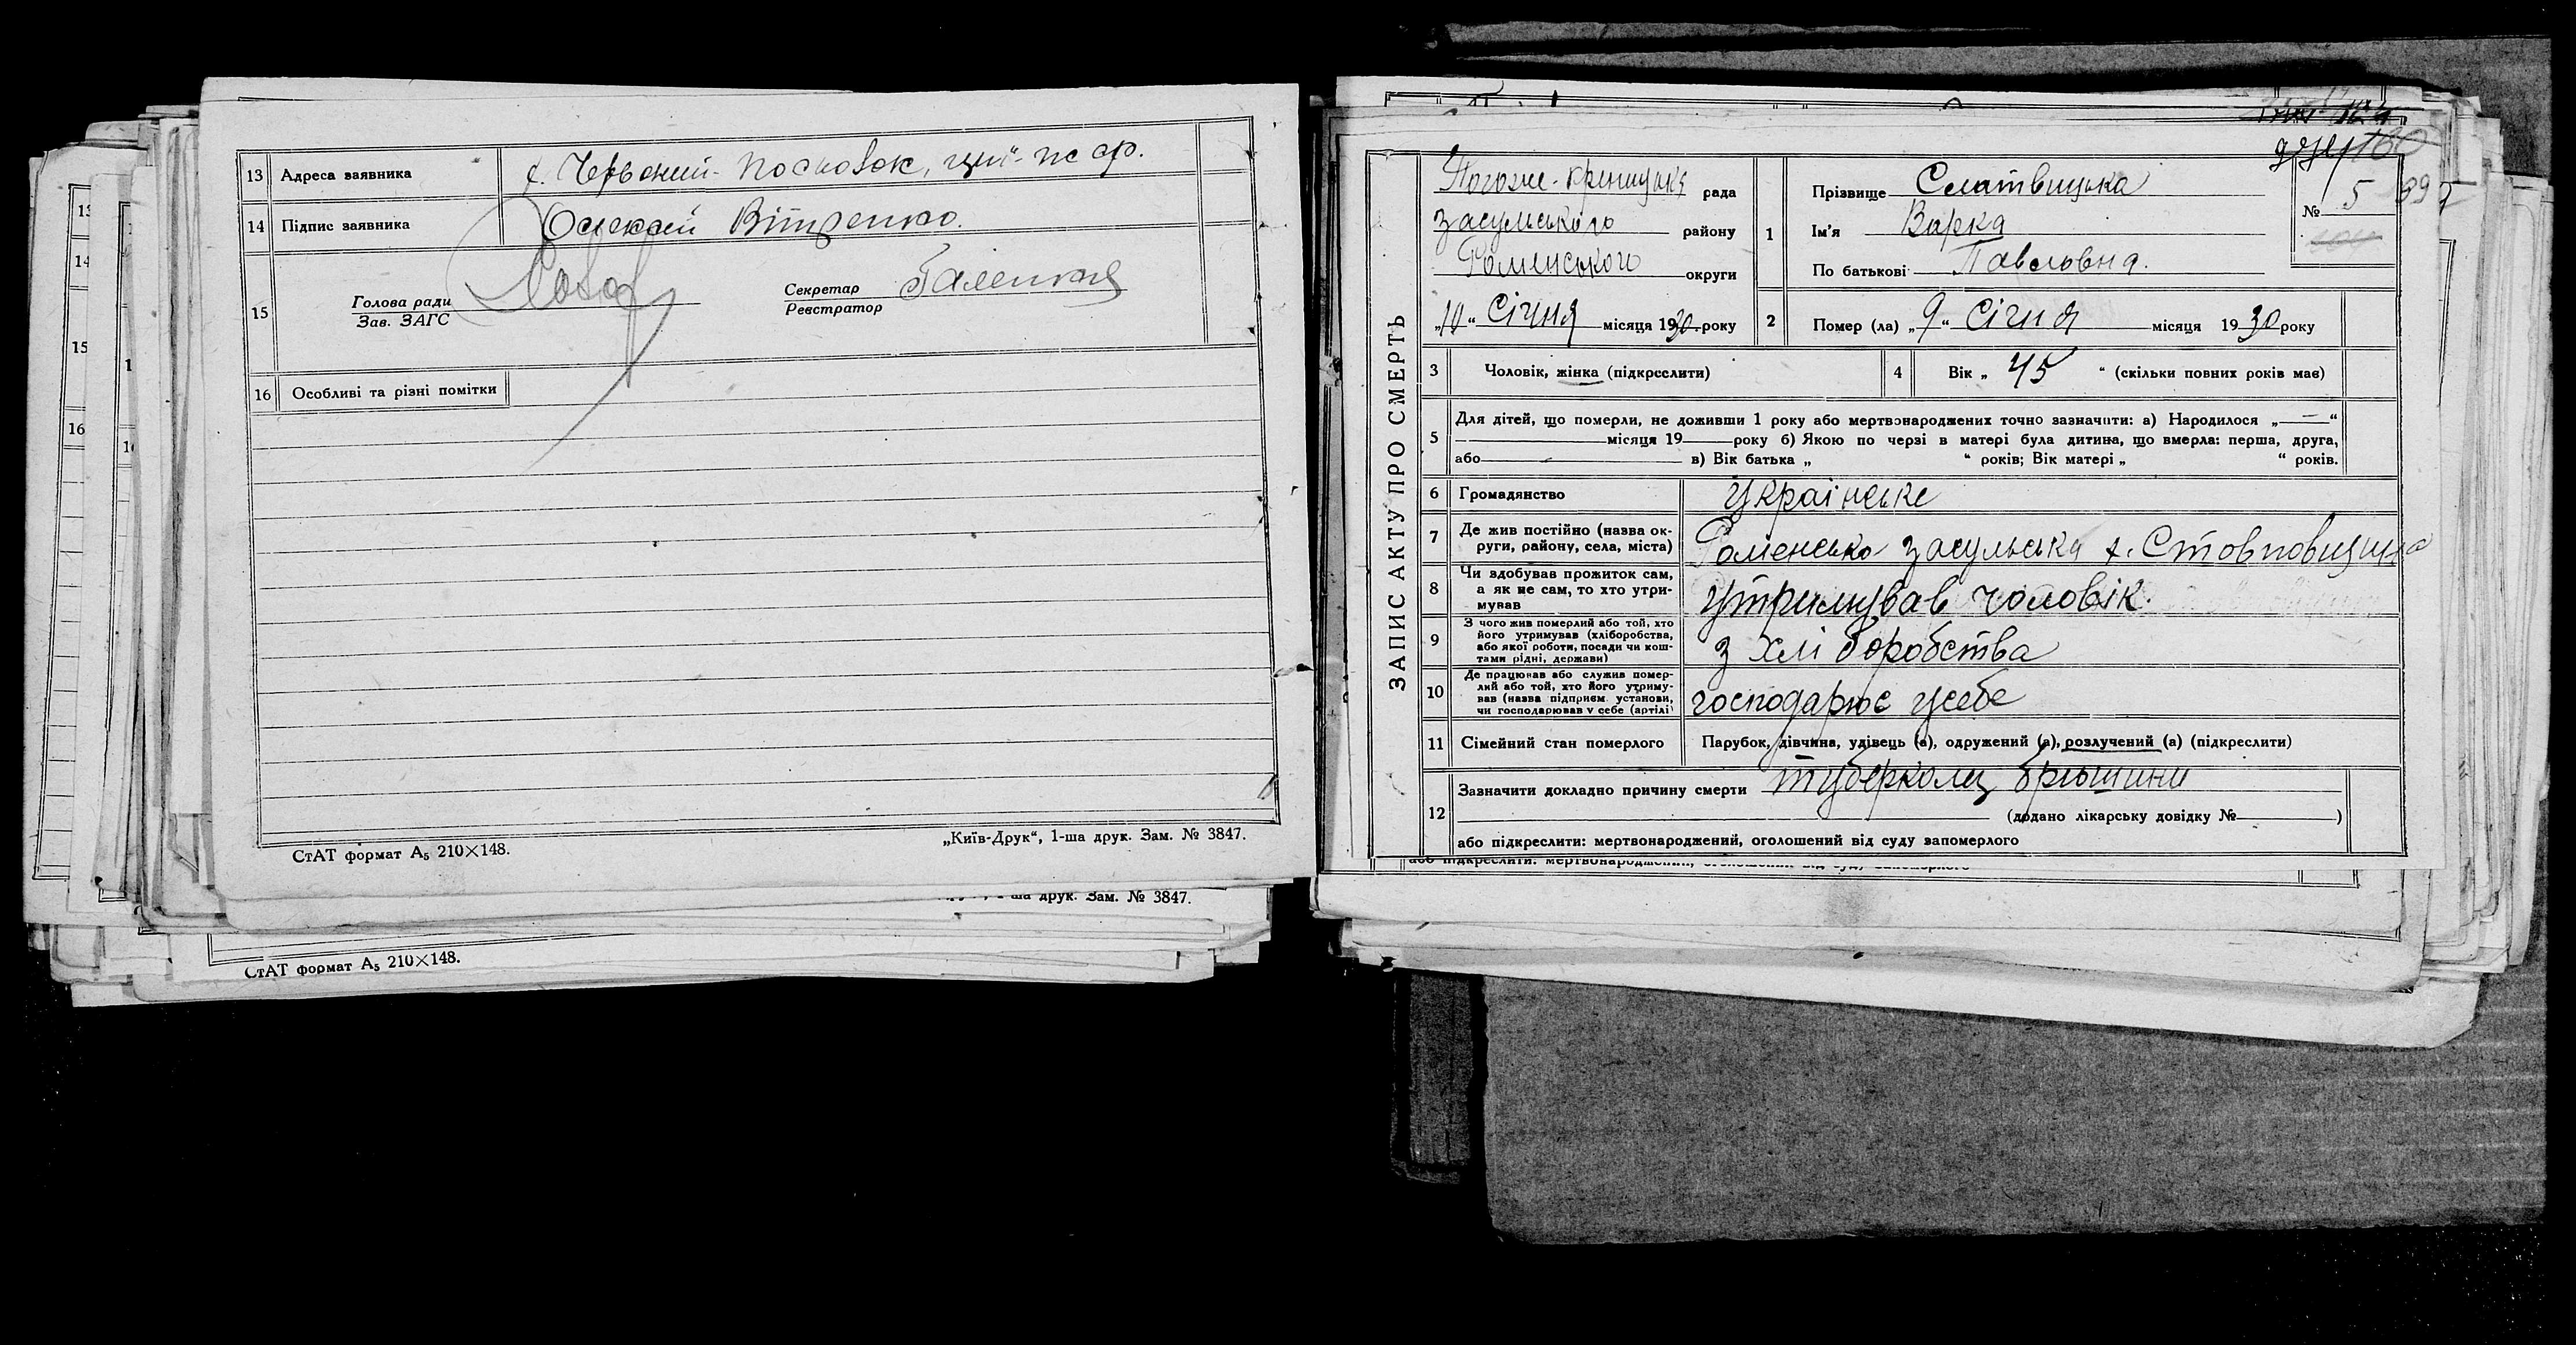 13 Адреса заявника х. Червоний-
14 Підпис заявника Олексій Вітренко.
15 Голова ради
Зав. ЗАГС
Секретар
Реєстратор
16 Особливі та різні помітки
СтАТ формат А5 210×148.
„Київ-Друк“, 1-ша друк. Зам. № 3847.
друк. Зам. № 3847.
СтАТ формат А5 210×148.
ЗАПИС АКТУ ПРО СМЕРТЬ
рада
засульського району
Роменського округи
„10“ Січня місяця 1930 року
1 Прізвище Слатвицька
Ім'я Варка
По батькові Павловна.
№ 5
2 Помер (ла) „9“ Січня місяця 1930 року
3 Чоловік, жінка (підкреслити)
4 Вік „ 45 “ (скільки повних років має)
5 Для дітей, що померли, не доживши 1 року або мертвонароджених точно зазначити: а) Народилося „—“
місяця 19 року б) Якою по черзі в матері була дитина, що вмерла: перша, друга,
або в) Вік батька „ “ років; Вік матері „ “ років.
6 Громадянство Українське
7 Де жив постійно (назва ок-
руги, району, села, міста) Роменська засульська х. Стовповищина
8 Чи здобував прожиток сам,
а як не сам, то хто утри-
мував утримував чоловік.
9 З чого жив померлий або той, хто
його утримував (хліборобства,
або якої роботи, посади чи кош-
тами рідні, держави) з хліборобства
10 Де працював або служив помер-
лий або той, хто його утриму-
вав (назва підприєм. установи,
чи господарював у себе (артілі) господарює усебе
11 Сімейний стан померлого Парубок, дівчина, удівець (а), одружений (а), розлучений (а) (підкреслити)
12 Зазначити докладно причину смерти туберколц брюшини
(додано лікарську довідку № )
або підкреслити: мертвонароджений, оголошений від суду запомерлого